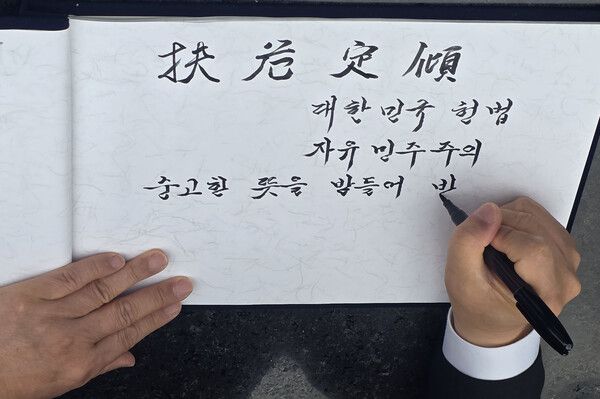 扶危定傾
대한민국 헌법
자유민주주의
숭고한 뜻을 받들어 바